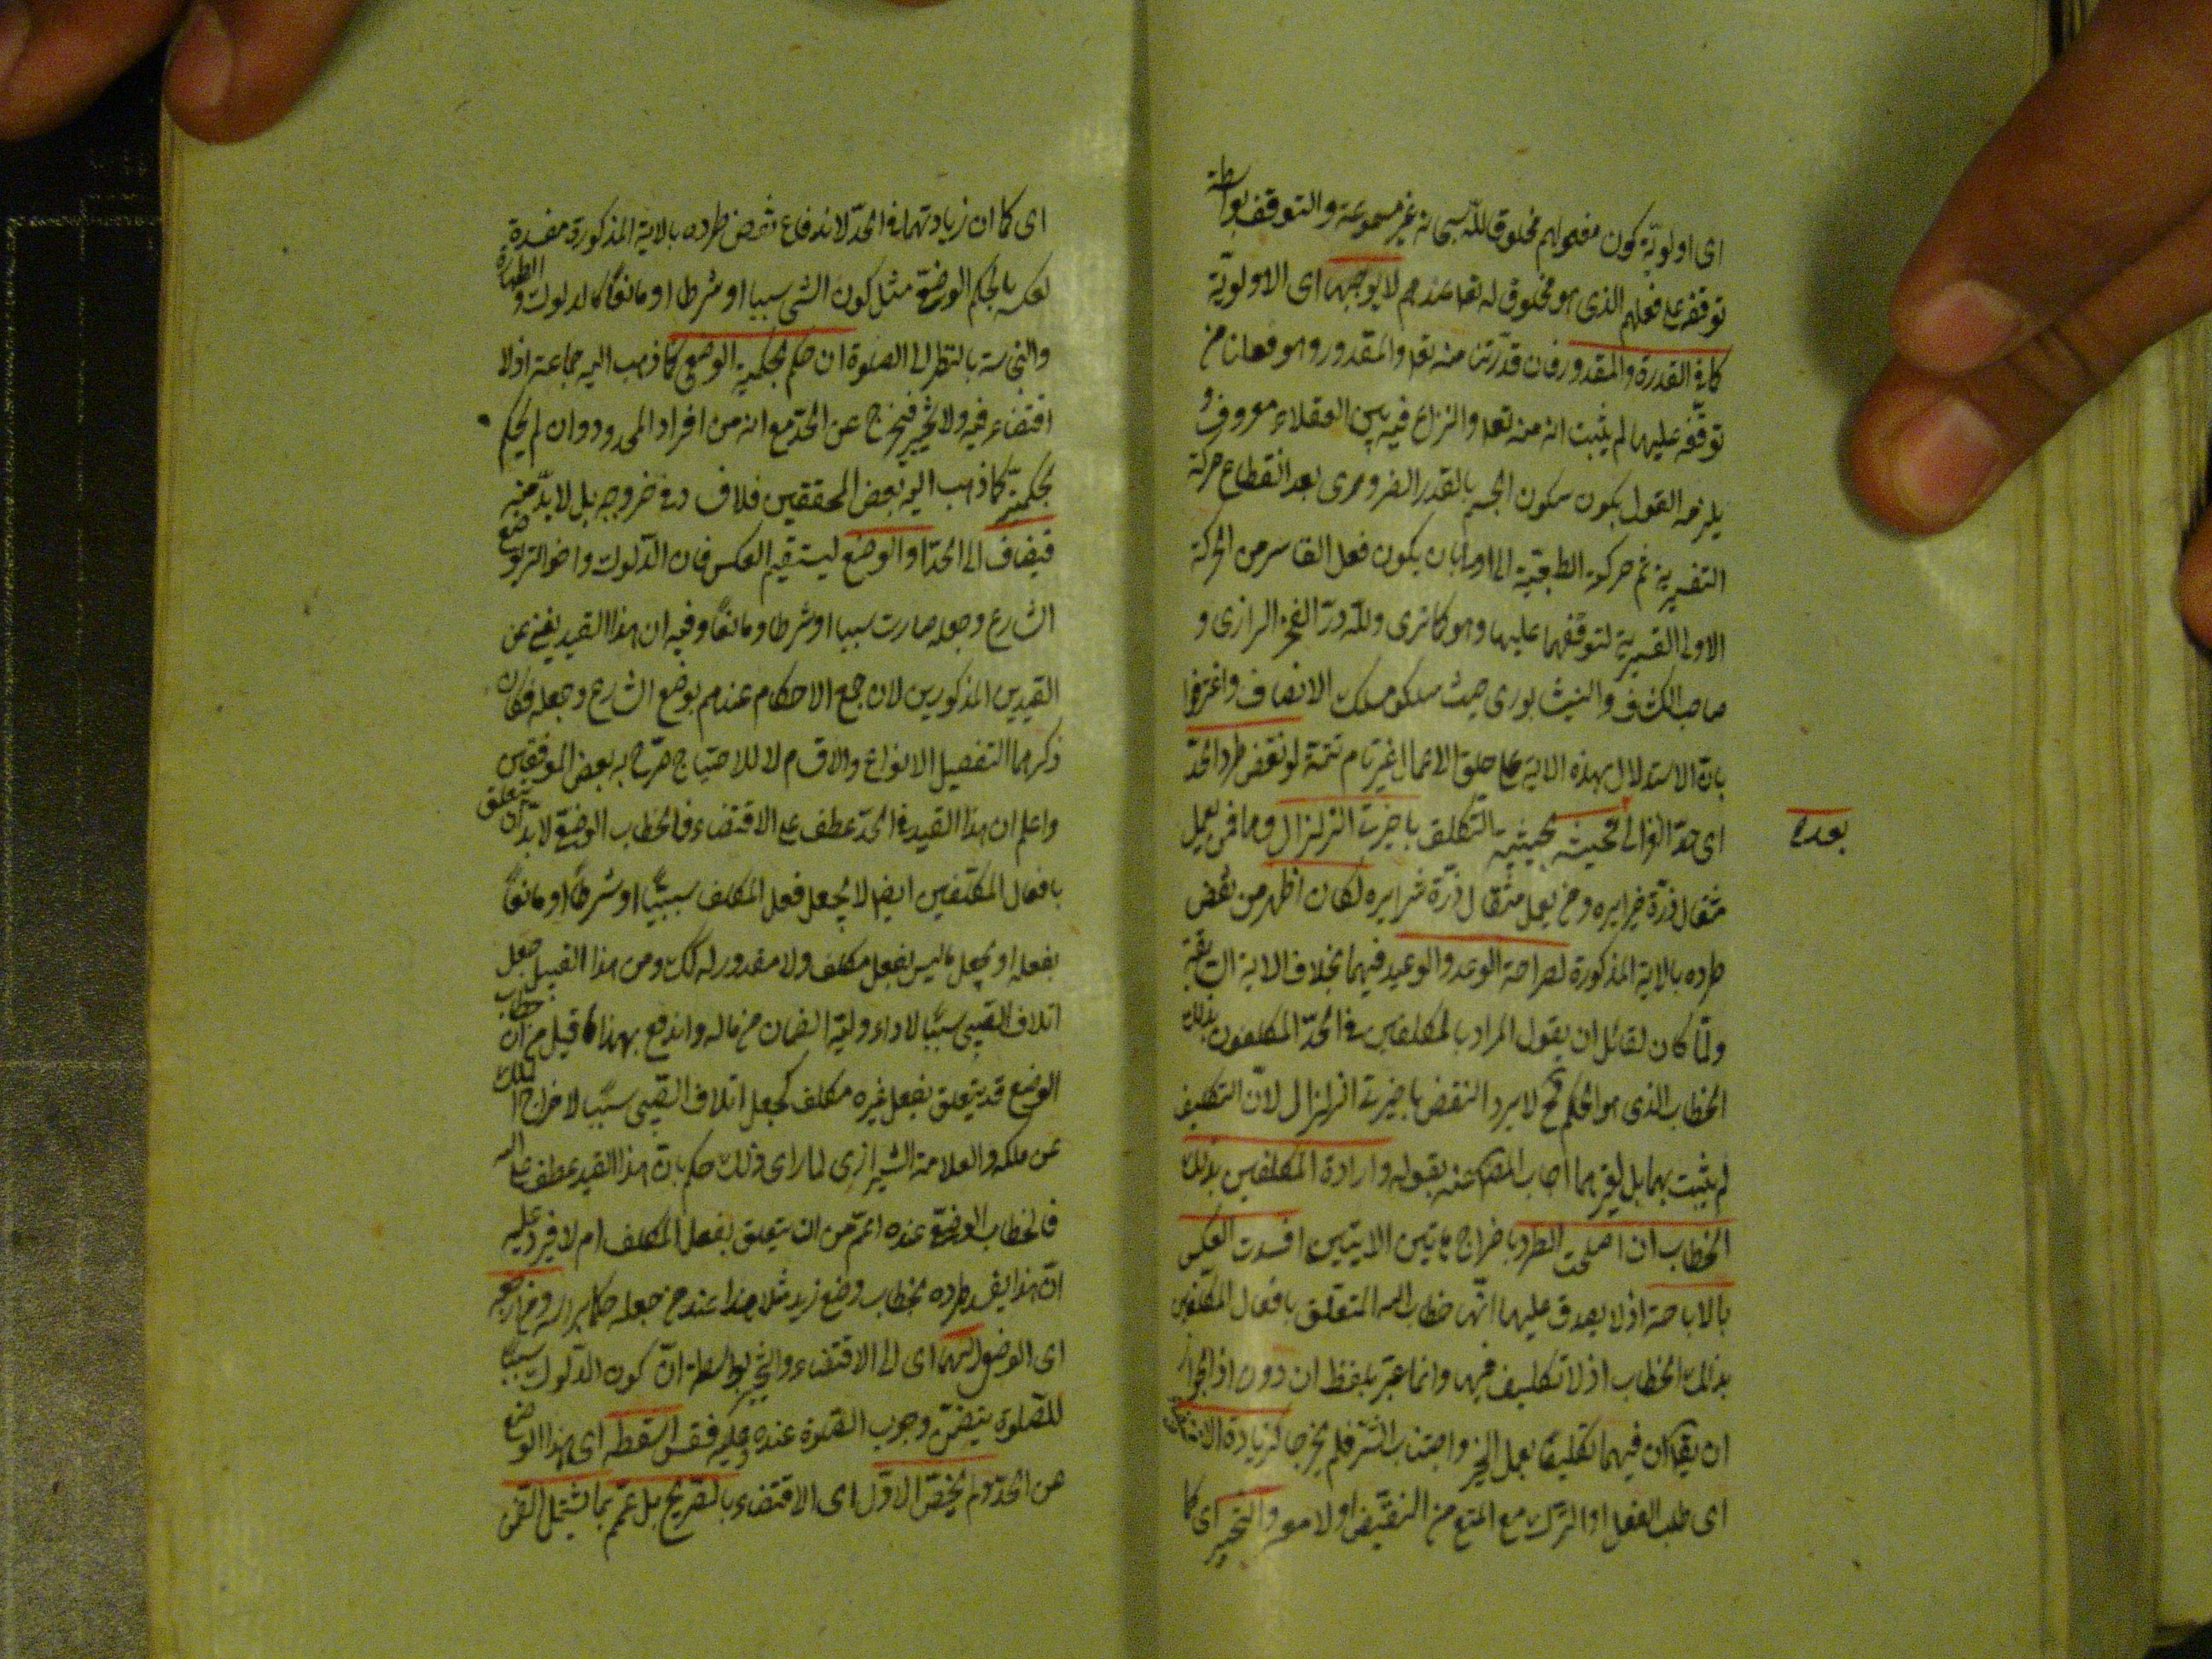 اى اولوية كون مفعولهم مخلوق لله سبحانه غير مسموعة والتوقف بواسطة
توقفه على فعلهم الذى هو مخلوق له تعا عندهم لا يوجبها اى الاولوية
كما فى القدرة والمقدور فان قدرتنا منه تعا والمقدور وهو فعلنا مع
توقفه عليها لم يثبت انه منه تعا والنزاع فيه بين العقلاء معروف و
يلزمه القول بكون سكون الجسم بالقدر الضرورى بعد انقطاع حركة
القسرية ثم حركته الطبيعية الى اوما بان يكون فعل القاسر من الحركة
الاولى القسرية لتوقفهما عليها وهو كما ترى ولله در الفخر الرازى و
صاحب الكشف والنيشابورى حيث سلكو مسلك الانصاف واعترفوا
بان الاستدلال بهذه الاية على خلق الاعمال غير تام تتمة لو نقض طرد الحد
اى حد الغزالى بحيثه بحيثية التكلف باخيرتى الزلزال وما فمن يعمل
مثقال ذرة خيرا يره ومن يعمل مثقال ذرة شرا يره لكان اظهر من نقض
طرده بالاية المذكورة لصراحة الوعد والوعيد فيهما بخلاف الاية السابقة
ولما كان لقائل ان يقول المراد بالمكلفين فى الحد المكلفون بذلك
الخطاب الذى هو الحكم فح لا يرد النقض باخيرتى الزلزال لان التكليف
لم يثبت بهما بل لغيرهما اجاب المص عنه بقوله وارادة المكلفين بذلك
الخطاب ان اصلحت الطرد باخراج هاتين الايتين افسدت العكس
بالاباحة اذ لا يصدق عليها انها خطاب الله المتعلق بافعال المكلفين
بذلك الخطاب اذ لا تكليف فيها وانما عبر بلفظ ان دون اذا لجواز
ان يقال ان فيهما تكليفا بعمل الخير واجتناب الشر فلم يخرجا لزيادة الاقتضاء
اى طلب الفعل او الترك مع المنع من النقيض اولا معه والتخيير اى كما
بعده
اى كما ان زيادتهما فى الحد لاندفاع نقض طرده بالاية المذكورة مفسدة
لعكسه بالحكم الوضعى مثل كون الشئ سببا او شرطا او مانعا كالدلوك والطهارة
والنجاسة بالنظر الى الصلوة ان حكم بحكمية الوضعى كما ذهب اليه جماعة اذ لا
اقتضاء فيه ولا تخيير فيخرج عن الحد مع انه من افراد المحدود وان لم يحكم
بحكميته كما ذهب اليه بعض المحققين فلا فساد فى خروجه بل لا بد منه
فيضاف الى الحد او الوضع ليستقيم العكس فان الدلوك واخواته بوضع
الشارع وجعله صارت سببا او شرطا ومانعا وفيه ان هذا القيد يغنى عن
القيدين المذكورين لان جميع الاحكام عندهم بوضع الشارع وجعله فكان
ذكرهما لتفصيل الانواع والاقسام لا للاحتياج صرح به بعض الموفقين
واعلم ان هذا القيد فى الحد عطف على الاقتضاء فالخطاب الوضعى لا بد ان يتعلق
بافعال المكلفين ايضا لا يجعل فعل المكلف سببا او شرطا او مانعا
بفعله او بجعل ما ليس بفعل مكلف ولا مقدور له كك ومن هذا القبيل جعل
اتلاف الصبى سببا لاداء وليه الضمان من ماله واندفع بهذا ما قيل من ان خطاب
الوضع قد يتعلق بفعل غيره مكلف كجعل اتلاف الصبى سببا لاخراج ذلك
عن ملكه والعلامة الشيرازى لما راى ذلك حكم بان هذا القيد عطف على الله
فالخطاب الوضعى عنده اعم من ان يتعلق بفعل المكلف ام لا فيرد عليه
ان هذا يفسد طرده بخطاب وضع زيد مثلا عند من جعله حاكما
اى الوضع اليهما اى الى الاقتضاء والتخيير بواسطة ان كون الدلوك سببا
للصلوة يتضمن وجوب الصلوة عنده وعليه فقس اسقطه اى هذا الوضع
عن الحد ولم يخص الاول اى الاقتضاء بالصريح بل عمم بما يشتمل الضمنى